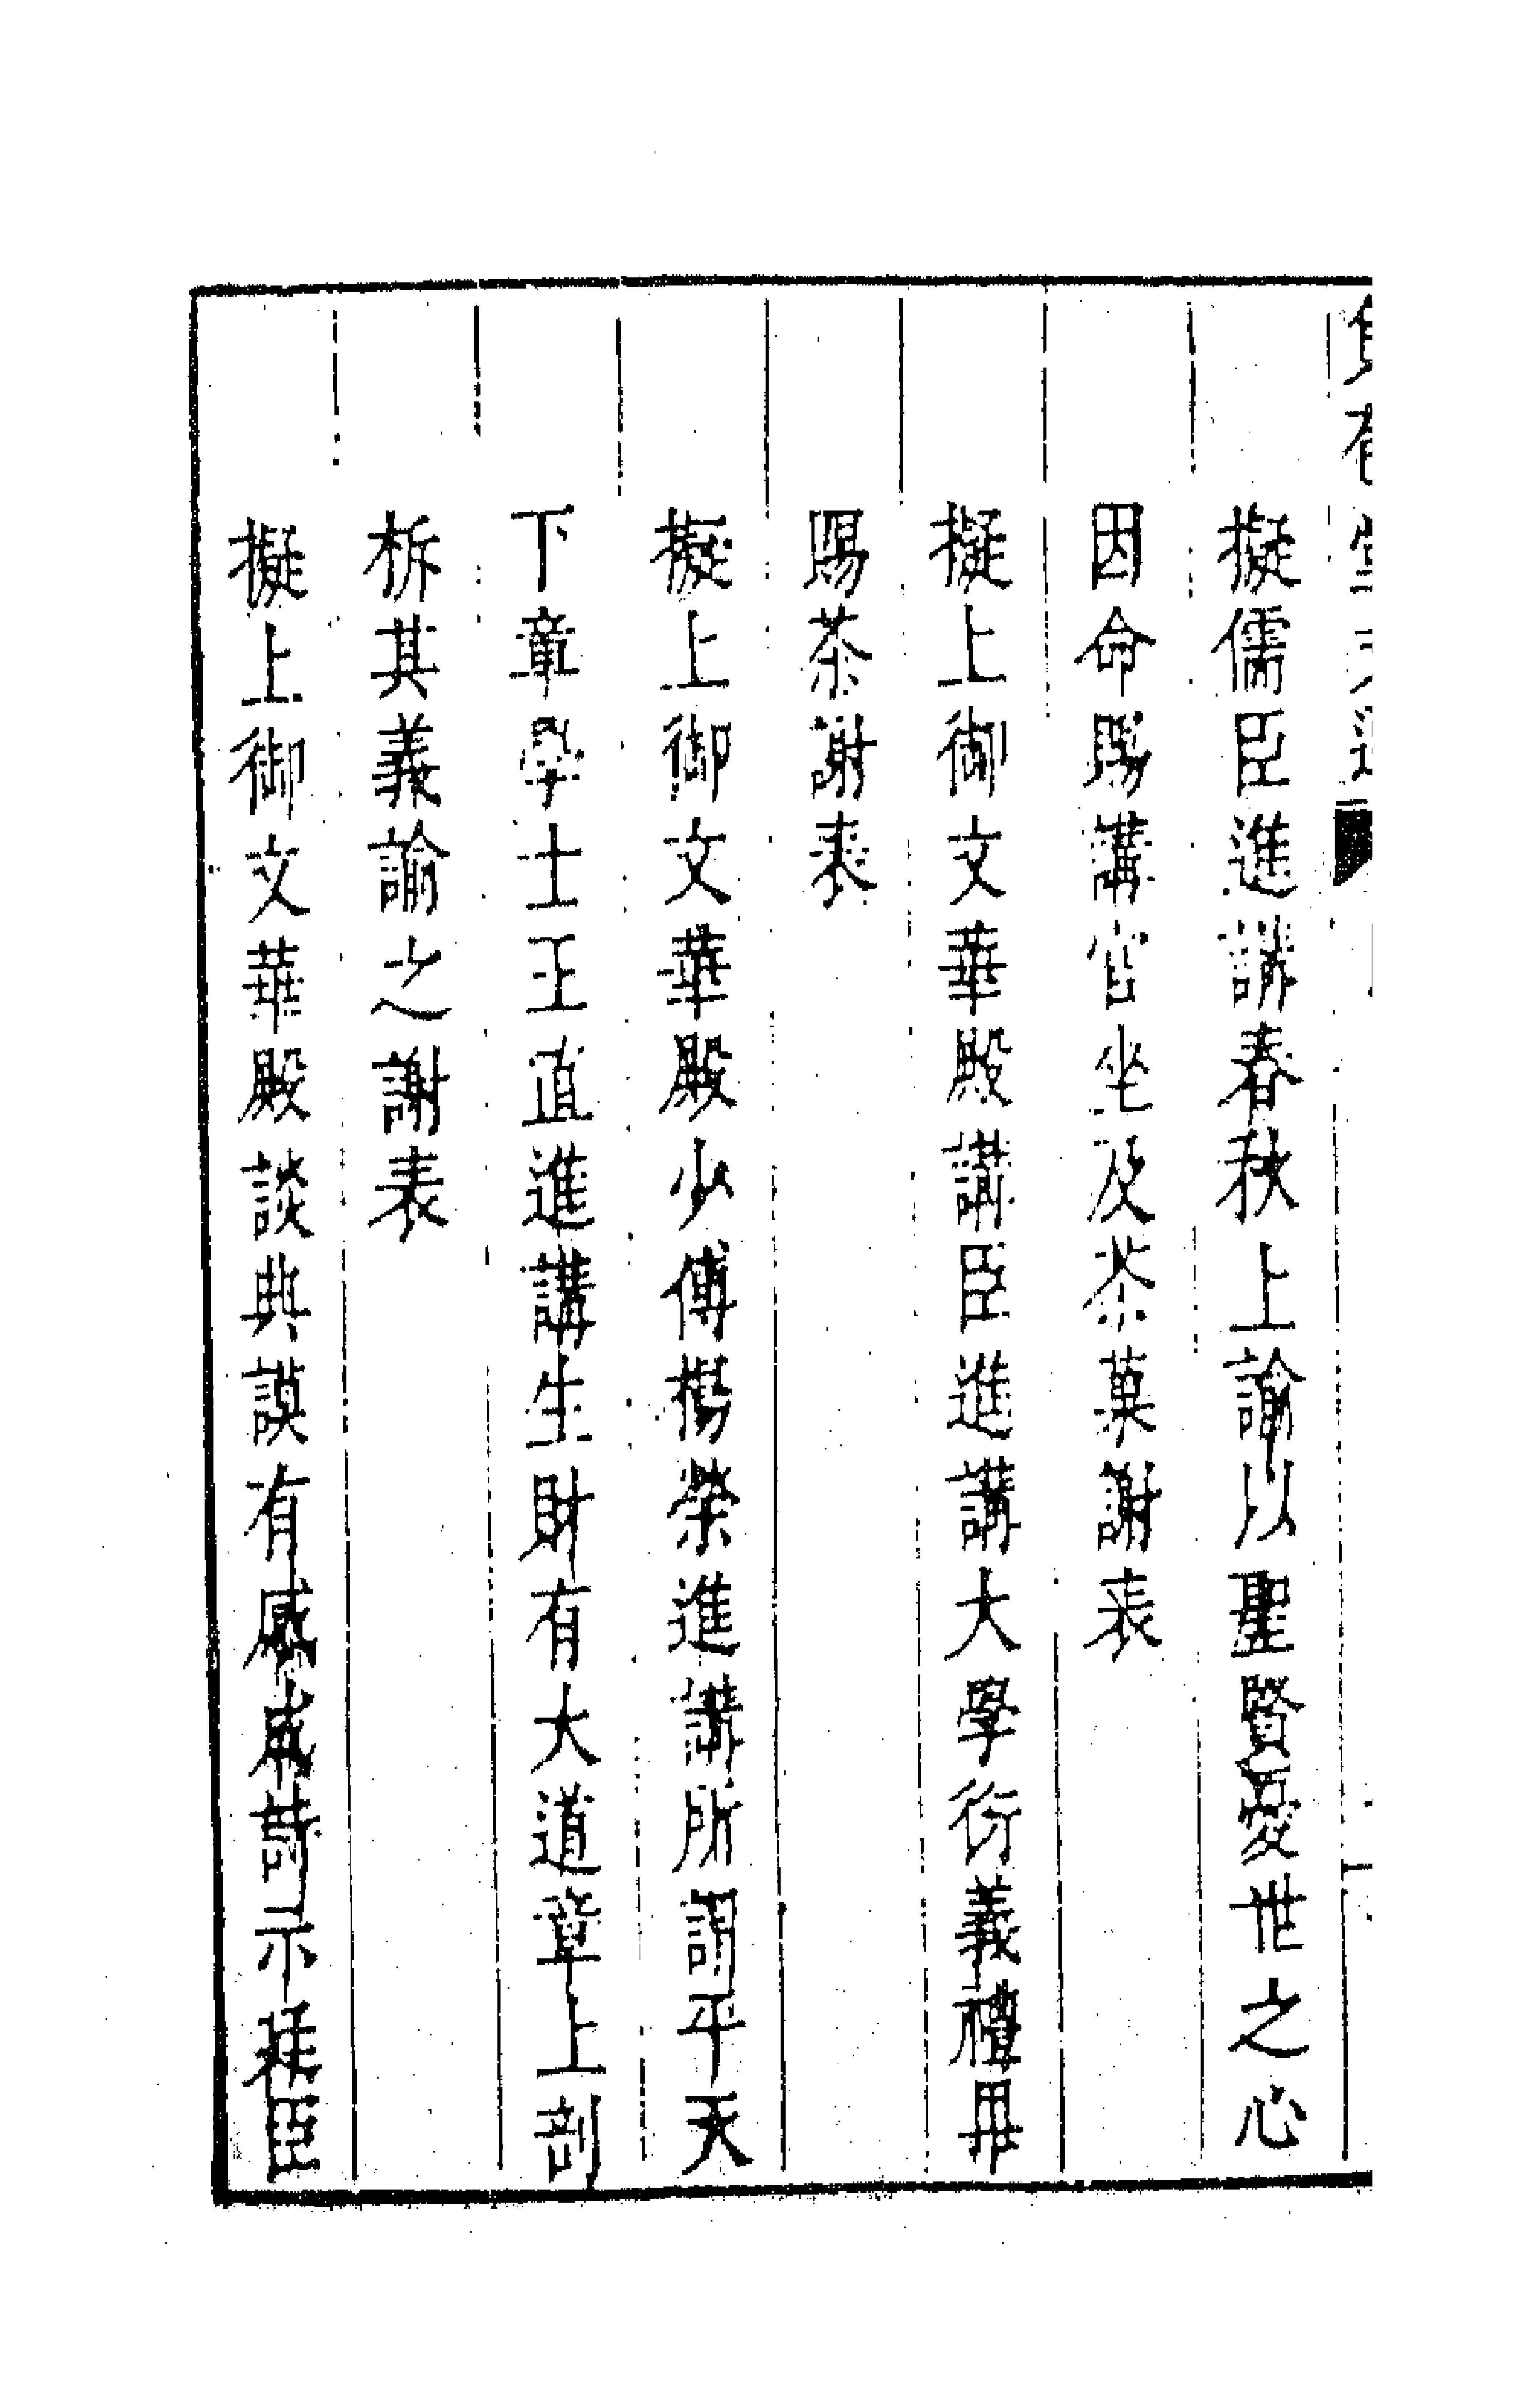 擬儒臣進講春秋上諭以聖賢憂世之心
因命賜講官坐及茶菓謝表
擬上御文華殿講臣進講大學衍義禮畢
賜茶謝表
擬上御文華殿少傅楊榮進講所謂平天
下章學士王直進講生財有大道章上剖
析其義諭之謝表
擬上御文華殿談典謨有感成詩示廷臣